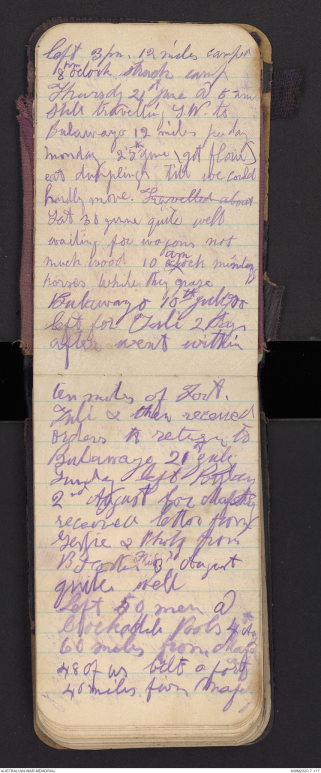 left 3 pm. 12 miles camped
8 pm oclock struck camp
Thursdy 21st June @ 6 am
still travellin S.W. to
Bulawayo 12 miles per day
monday 25th June (got flour)
eat dumplings till we could
hardly move. Travelled about
Sat 30 June quite well
waiting for wagons not
much food 10 am minding
horses while they graze
Bulawayo 18th July 00
left for Tuli 2 Days
after went within
ten miles of Fort.
Tuli & then received
orders to return to
Bulawayo 21st July
Sunday left
2nd August for
received letter from
& from
B 3rd August
quite well
Left 50 men @
Crockadile Pools 4th
60 miles from
48 of us bilt a fort
40 miles from
AUSTRALIAN WAR MEMORIAL